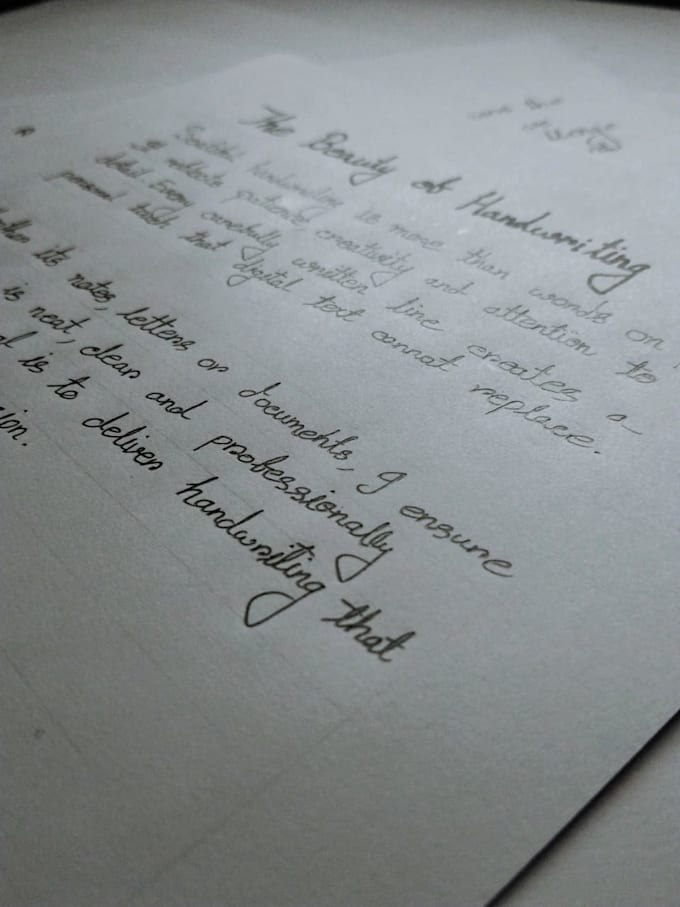 The Beauty of Handwriting
handwriting is more than words on
It reflects patience creativity and attention to
detail. Every carefully written line creates a
personal touch that digital text cannot replace.
its notes, letters or documents, I ensure
is neat, clean and professionally
is to deliver handwriting that